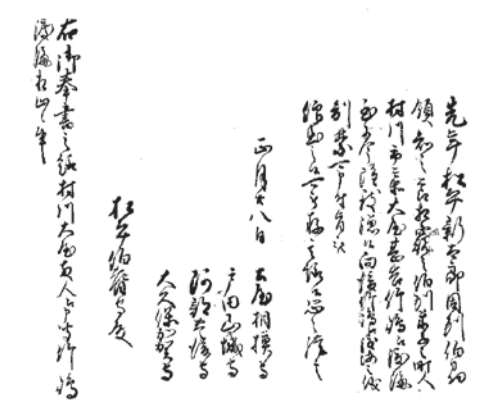 先年松平新太郎因州伯州
領知之節相窺之伯州米子之町人
村川市兵衛大屋甚吉竹嶋江渡海
至于今雖致漁候向後竹嶋江渡海之儀
制禁可申付旨
仰出之候可被存其趣候恐々謹言
正月廿八日 土屋相模守
戸田山城守
阿部豊後守
大久保加賀守
松平伯耆守殿
右御奉書之趣村川大屋両人江 竹嶋
渡海相止